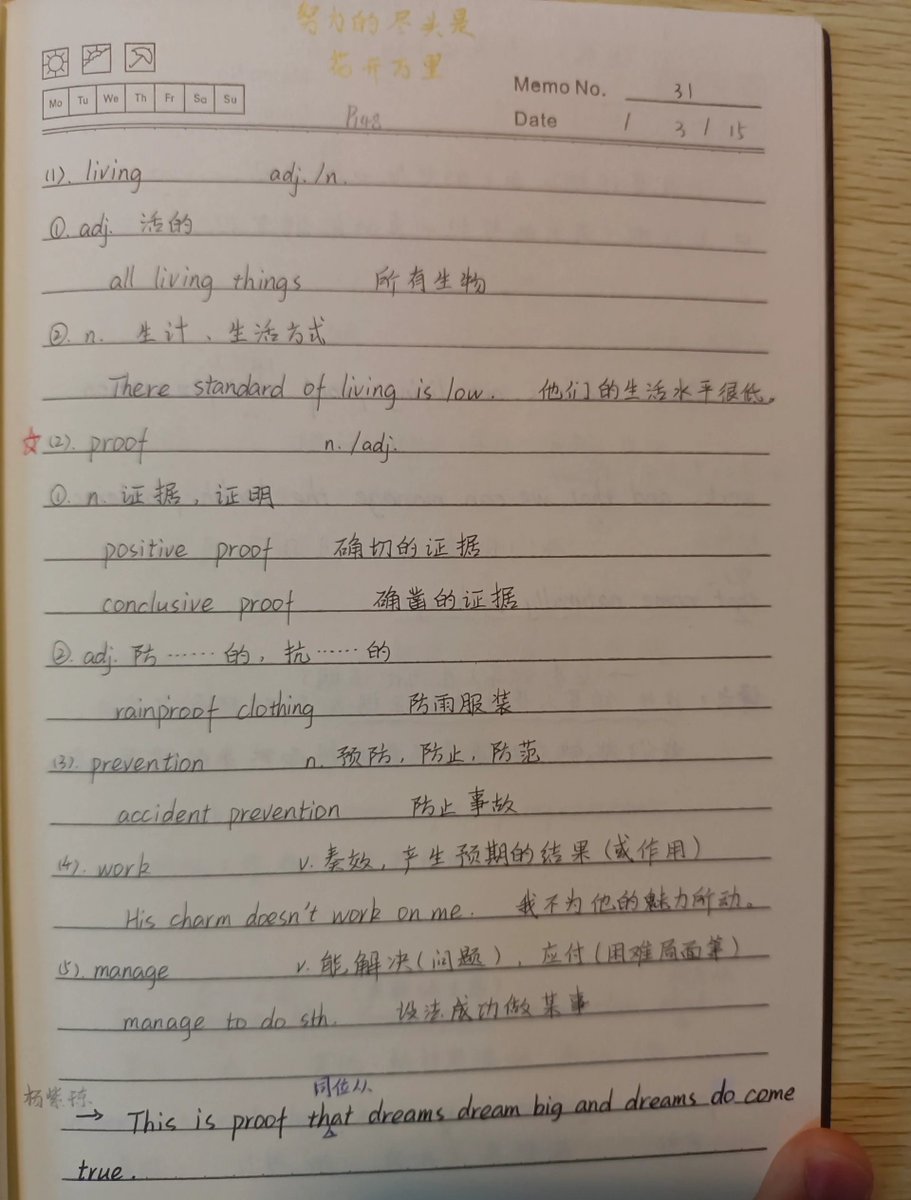 努力的尽头是
花开万里
Memo No. 31
Mo Tu We Th Fr Sa Su
P148
Date / 3 / 15
(1). living adj./n.
①. adj. 活的
all living things 所有生物
②. n. 生计、生活方式
There standard of living is low. 他们的生活水平很低。
☆(2). proof n. /adj.
①. n. 证据, 证明
positive proof 确切的证据
conclusive proof 确凿的证据
②. adj. 防……的, 抗……的
rainproof clothing 防雨服装
(3). prevention n. 预防, 防止, 防范
accident prevention 防止事故
(4). work v. 奏效, 产生预期的结果(或作用)
His charm doesn't work on me. 我不为他的魅力所动。
(5). manage v. 能解决(问题), 应付(困难局面等)
manage to do sth. 设法成功做某事
同位从
杨紫琼
→ This is proof that dreams dream big and dreams do come
true.